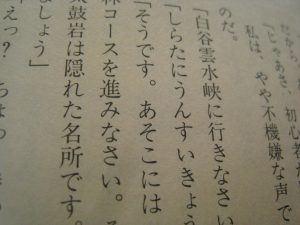 だから、
「じゃあさ、初心者な
私は、やや不機嫌な声で
のだ。
「白谷雲水峡に行きなさい
「しらたにうんすいきょう
「そうです。あそこには
林コースを進みなさい。
鼓岩は隠れた名所です。
ましょう」
えっ？　ちょっ